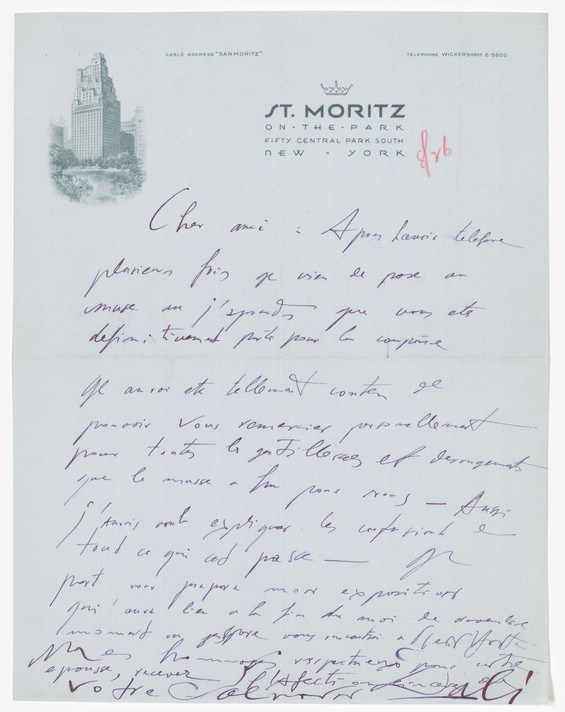 CABLE ADDRESS "SANMORITZ"
TELEPHONE WICKERSHAM 2-5800
ST. MORITZ
ON·THE·PARK
FIFTY CENTRAL PARK SOUTH
NEW · YORK
Cher ami : Apres telefone
plusieurs fois je vien de pase au
musee ou j'aprends que vous ete
definitivement parti pour la
Je aurai ete tellemat conten de
pouvoir vous remercier personellement
pour toutes les gentillesses et derangements
que le musee a pour nous — Aussi
j'aurais voulu expliquer les
tout ce qui cet passe — Je
part pour prepare mon exposition
qui aura lieu a la fin du moi de novembre
moment ou j'espere vous rencontre a
Mes hommages respectueux pour votre
epousse, recevez l'afection de
Votre Salvador Dali